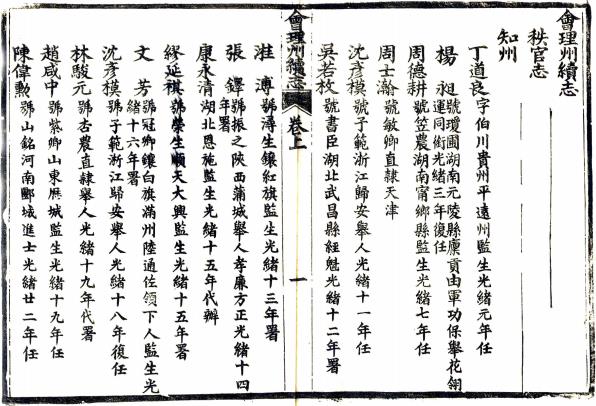 會理州續志
秩官志
知州
丁道良字伯川貴州平遠州監生光緒元年任
楊 昶號瓊圃湖南元陵縣廪貢由軍功保舉花翎運同銜光緒三年復任
周德耕號笠農湖南甯鄉縣監生光緒七年任
周士瀚號敏卿直隷天津
沈彥模號子範浙江歸安舉人光緒十一年任
吳若枚號書臣湖北武昌縣經魁光緒十二年署
會理州續志 卷上 一
桂 溥號濤生鑲紅旗監生光緒十三年署
張 鐸號振之陝西蒲城舉人孝廉方正光緒十四年署
康永清湖北恩施監生光緒十五年代辦
繆延祺號榮生順天大興監生光緒十五年署
文 芳號冠卿鑲白旗滿州陸通佐領下人監生光緒十六年署
沈彥模號子範浙江歸安舉人光緒十八年復任
林駿元號杏農直隷舉人光緒十九年代署
趙咸中號紫卿山東歷城監生光緒十九年任
陳偉勲號山銘河南郾城進士光緒廿二年任